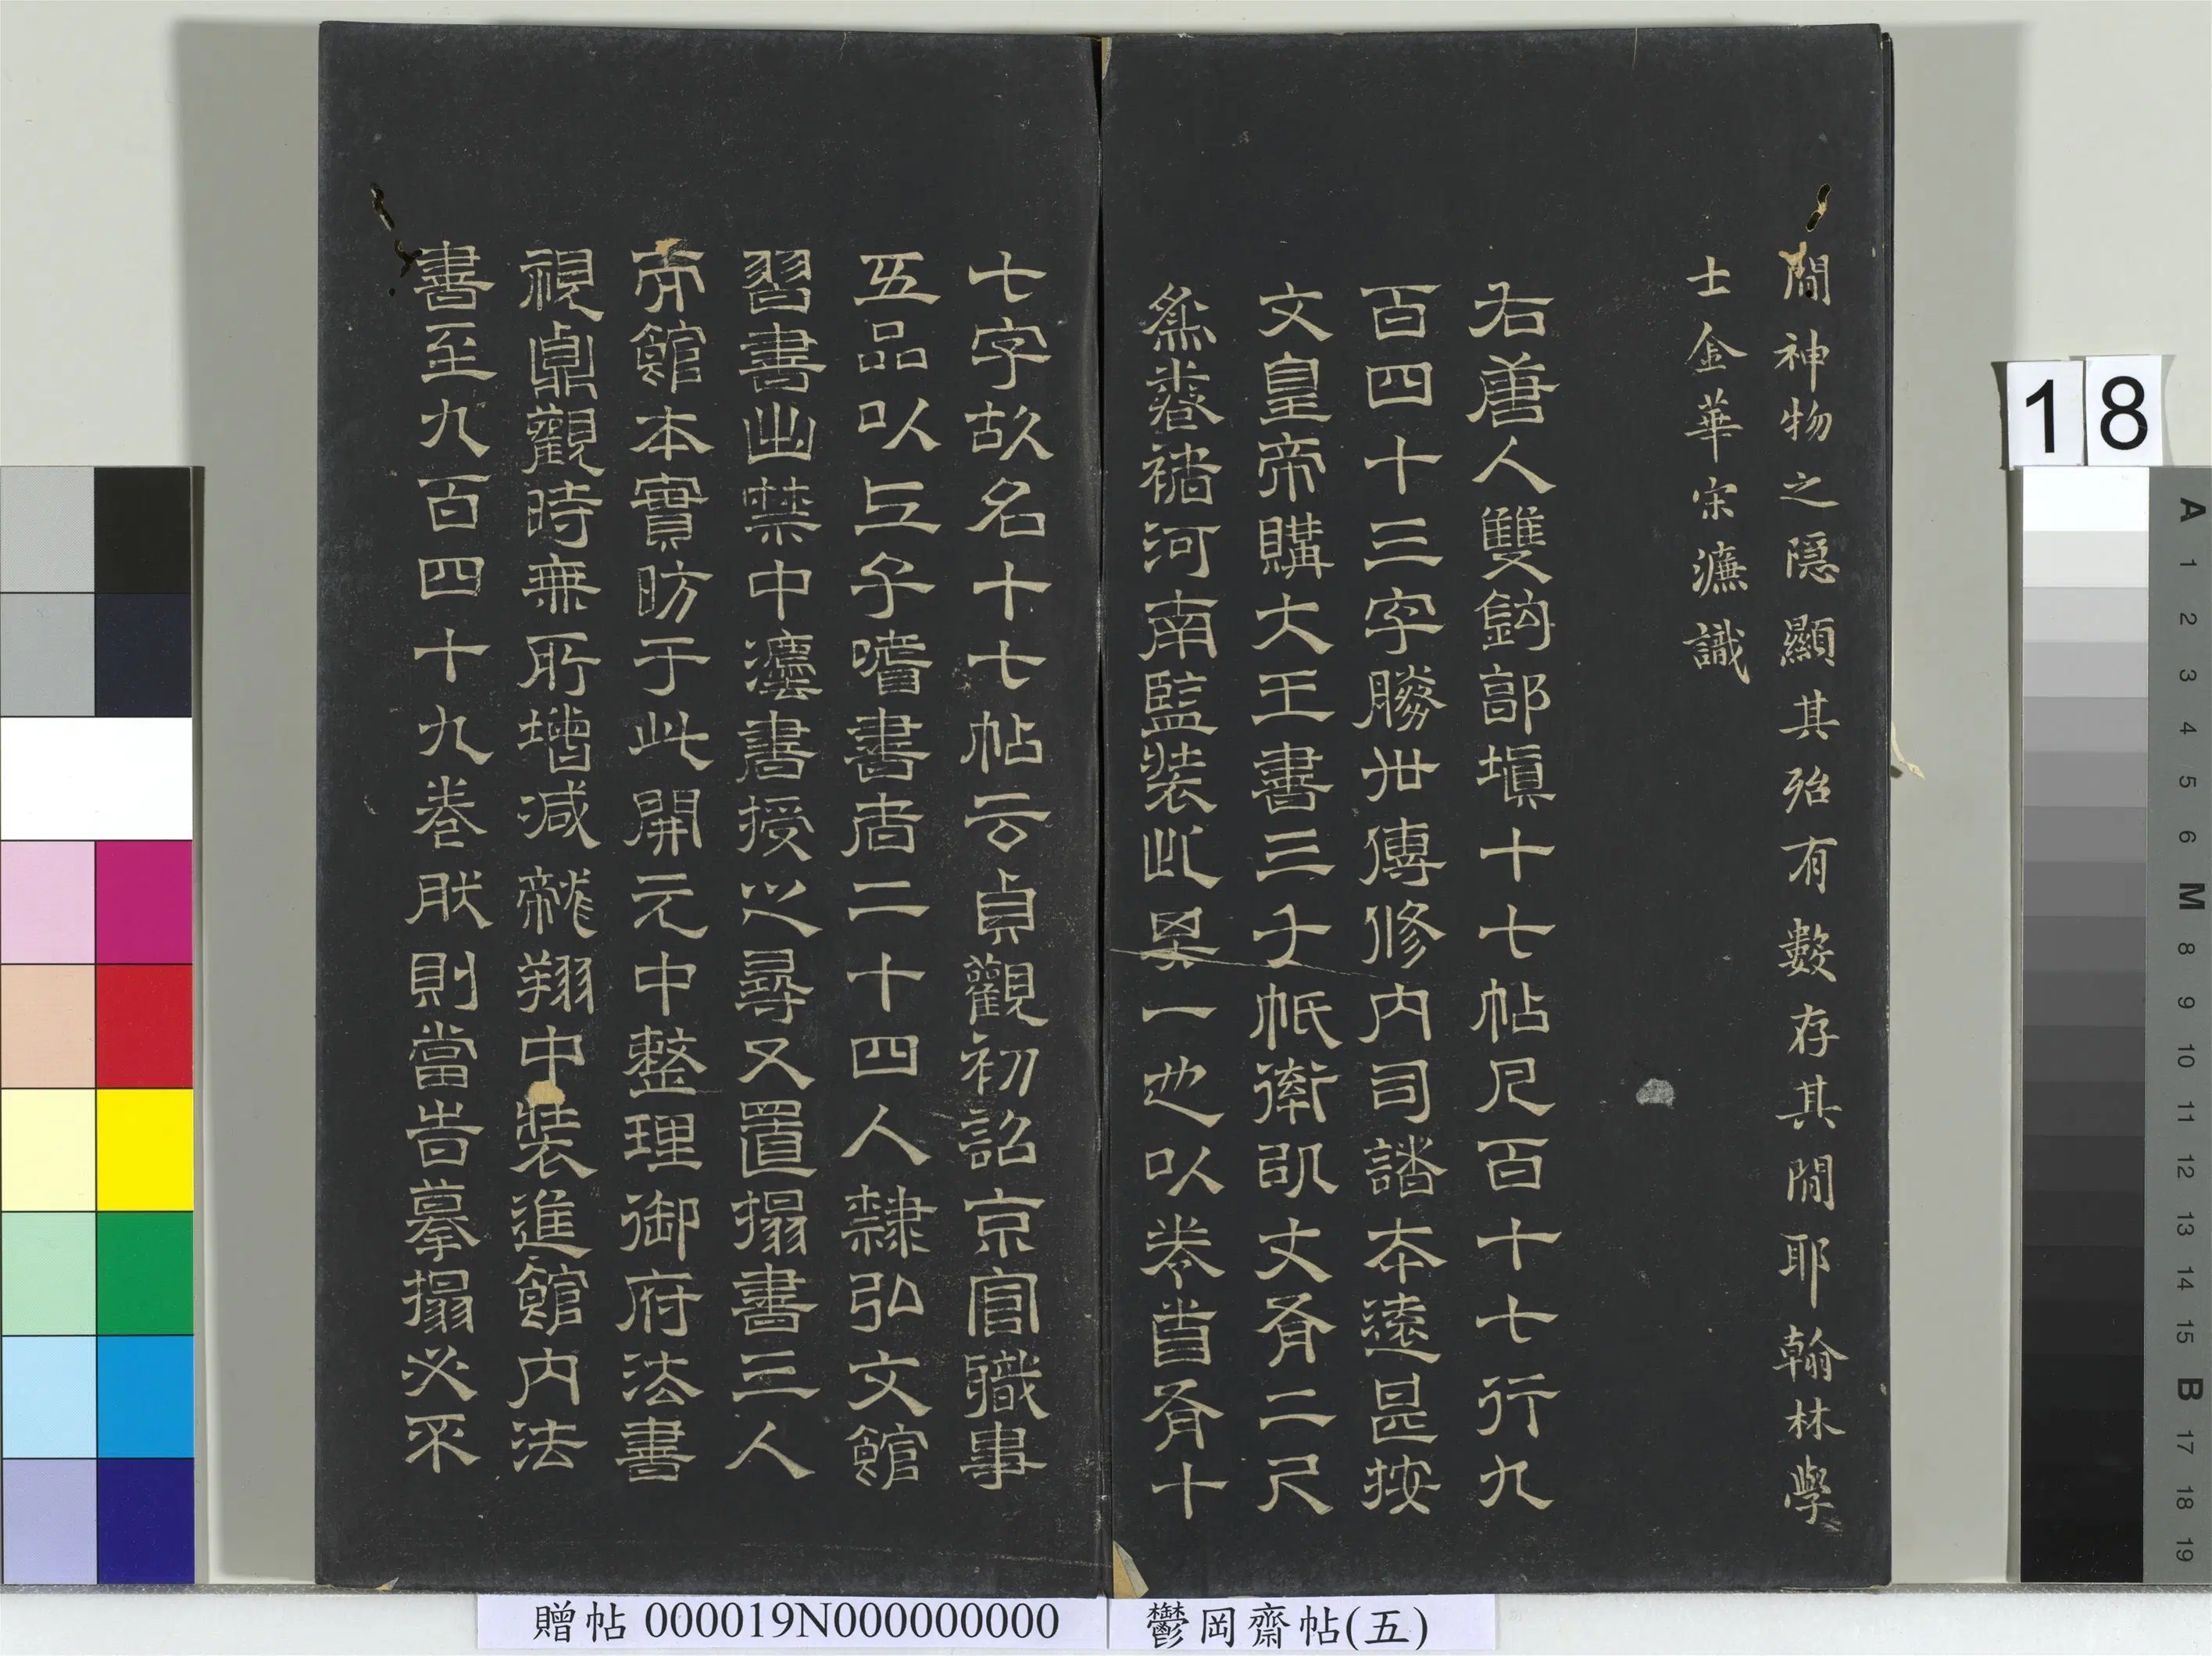 間神物之隱顯其殆有數存其間耶翰林學
士金華宋濂識
右唐人雙鈎郭填十七帖凡百十七行九
百四十三字勝世傳修內司諸本遠甚按
文皇帝購大王書三千帋率丈有二尺
為卷褚河南監裝此其一也以卷首有十
七字故名十七帖云貞觀初詔京官職事
五品以上子嗜書者二十四人隸弘文館
習書出禁中灋書授之尋又置搨書三人
而館本實昉于此開元中整理御府法書
視鼎觀時無所增減龍翔中裝進館內法
書至九百四十九卷肰則當旹摹搨必不
18
贈帖 000019N000000000
鬱岡齋帖(五)
A 1 2 3 4 5 6 M 8 9 10 11 12 13 14 15 B 17 18 19